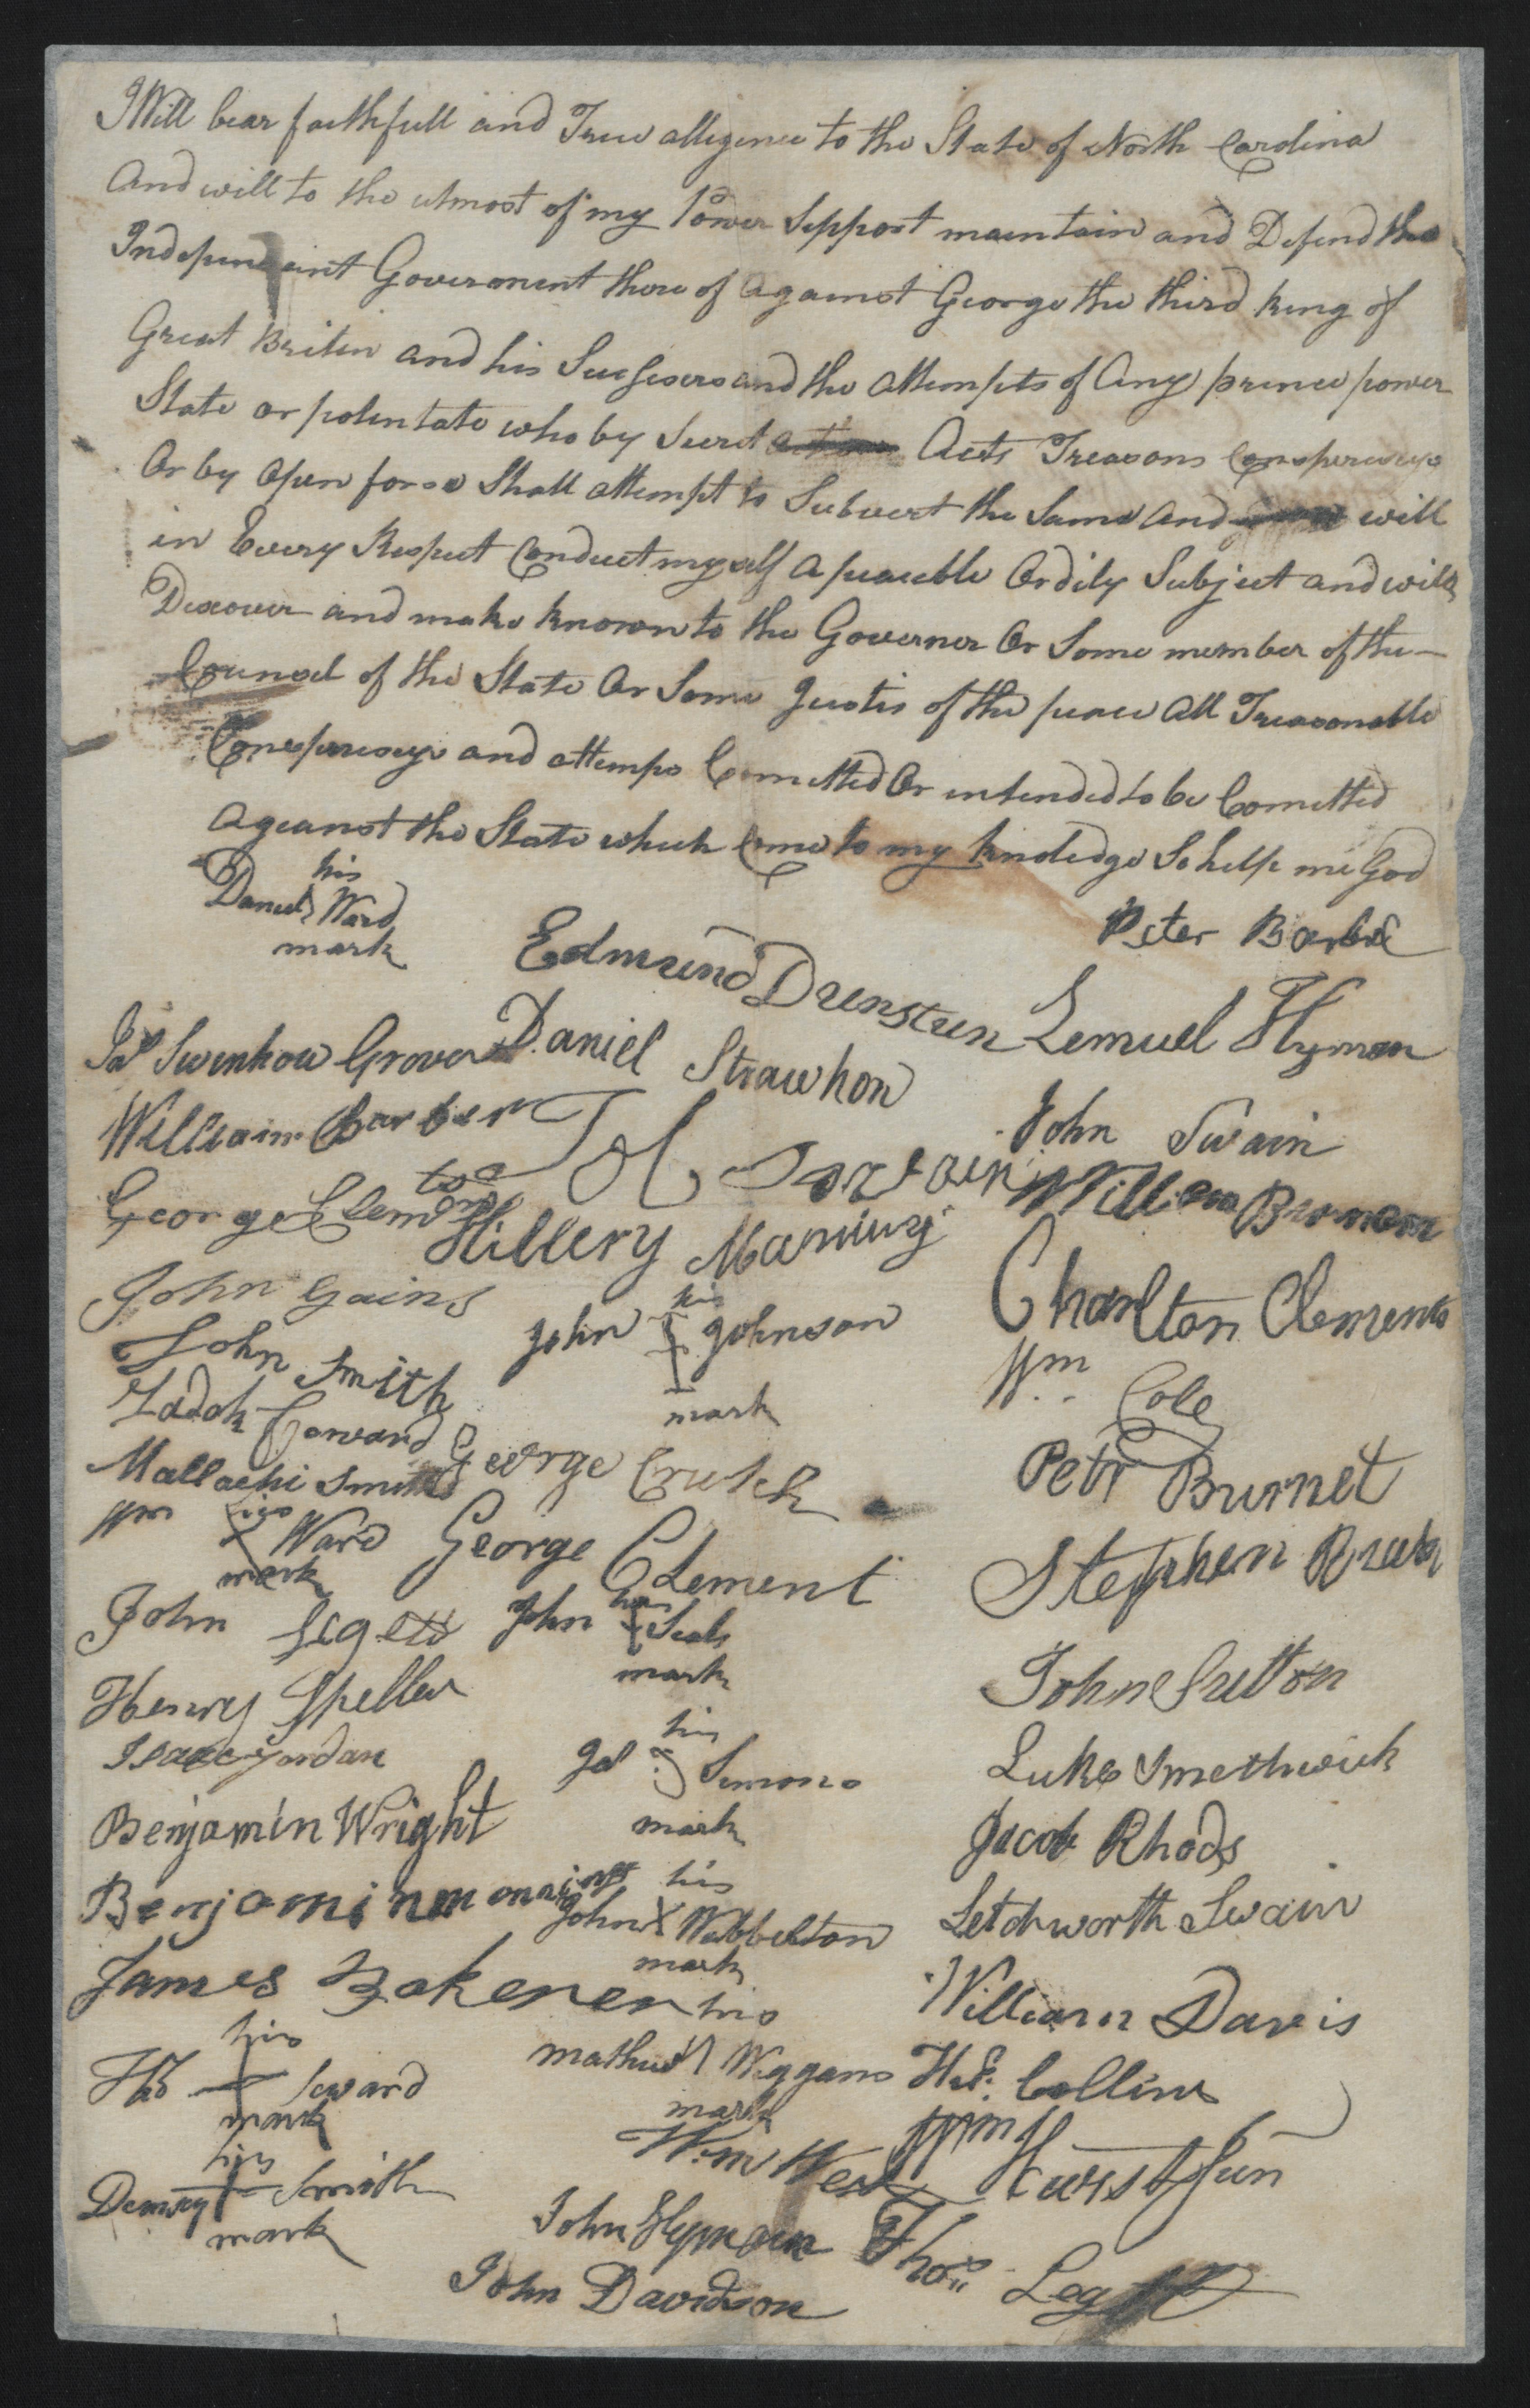 I Will bear faithfull and True alligence to the State of North Carolina
And will to the utmost of my Power Sepport maentain and Defend the
Independeint Goveronment there of against George the third king of
Great Briten and his Sucsesers and the attempts of Any prince power
State or potentate who by Secret Acts Treasons Conspericeys
Or by Open forse Shall attempt to Subvert the Same and will
in Every Respect Conduct myself a peaceble Ordily Subject and will
Discover and make known to the Governer Or Some member of the
Counsel of the State Or Some Justis of the peace All Treasonable
Consperiseys and attemps Comitted Or intended to be Comitted
against the State which Come to my knoledge So help me God
his
Daniel Ward
mark
Peter Barbre
Edmund Dunstun Lemuel Hyman
Jas Swinhow Grover Daniel Strawhon
William Barber John Swain
George Clements
Hillery Maning
John Gains
his
John Johnson
mark
Charlton Clements
John Smith
Wm Cole
Zadok Coward George Crutch
Mallachi Smith
Petr Burnet
his
Wm Ward George Clement
mark
Stephen
his
John Legett John Seals
mark
Henry Speller
John Sutton
Isaac Jordan
his
Jas Simons
mark
Luke Smethwick
Benjamin Wright
Jacob Rhods
Benjamin
his
John X Wabbelton
mark
Letchworth Swain
James Bakener
William Davis
his
mathew Wiggans
mark
Hd. Collins
his
Thos Seward
mark
Wm West
Wm Hurst Jun
his
Demsey Smith
mark
John Hyman Thos. Legett
John Davidson